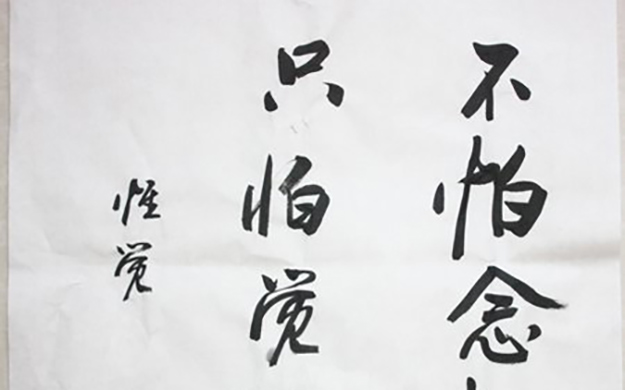 不怕念
只怕觉
惟觉